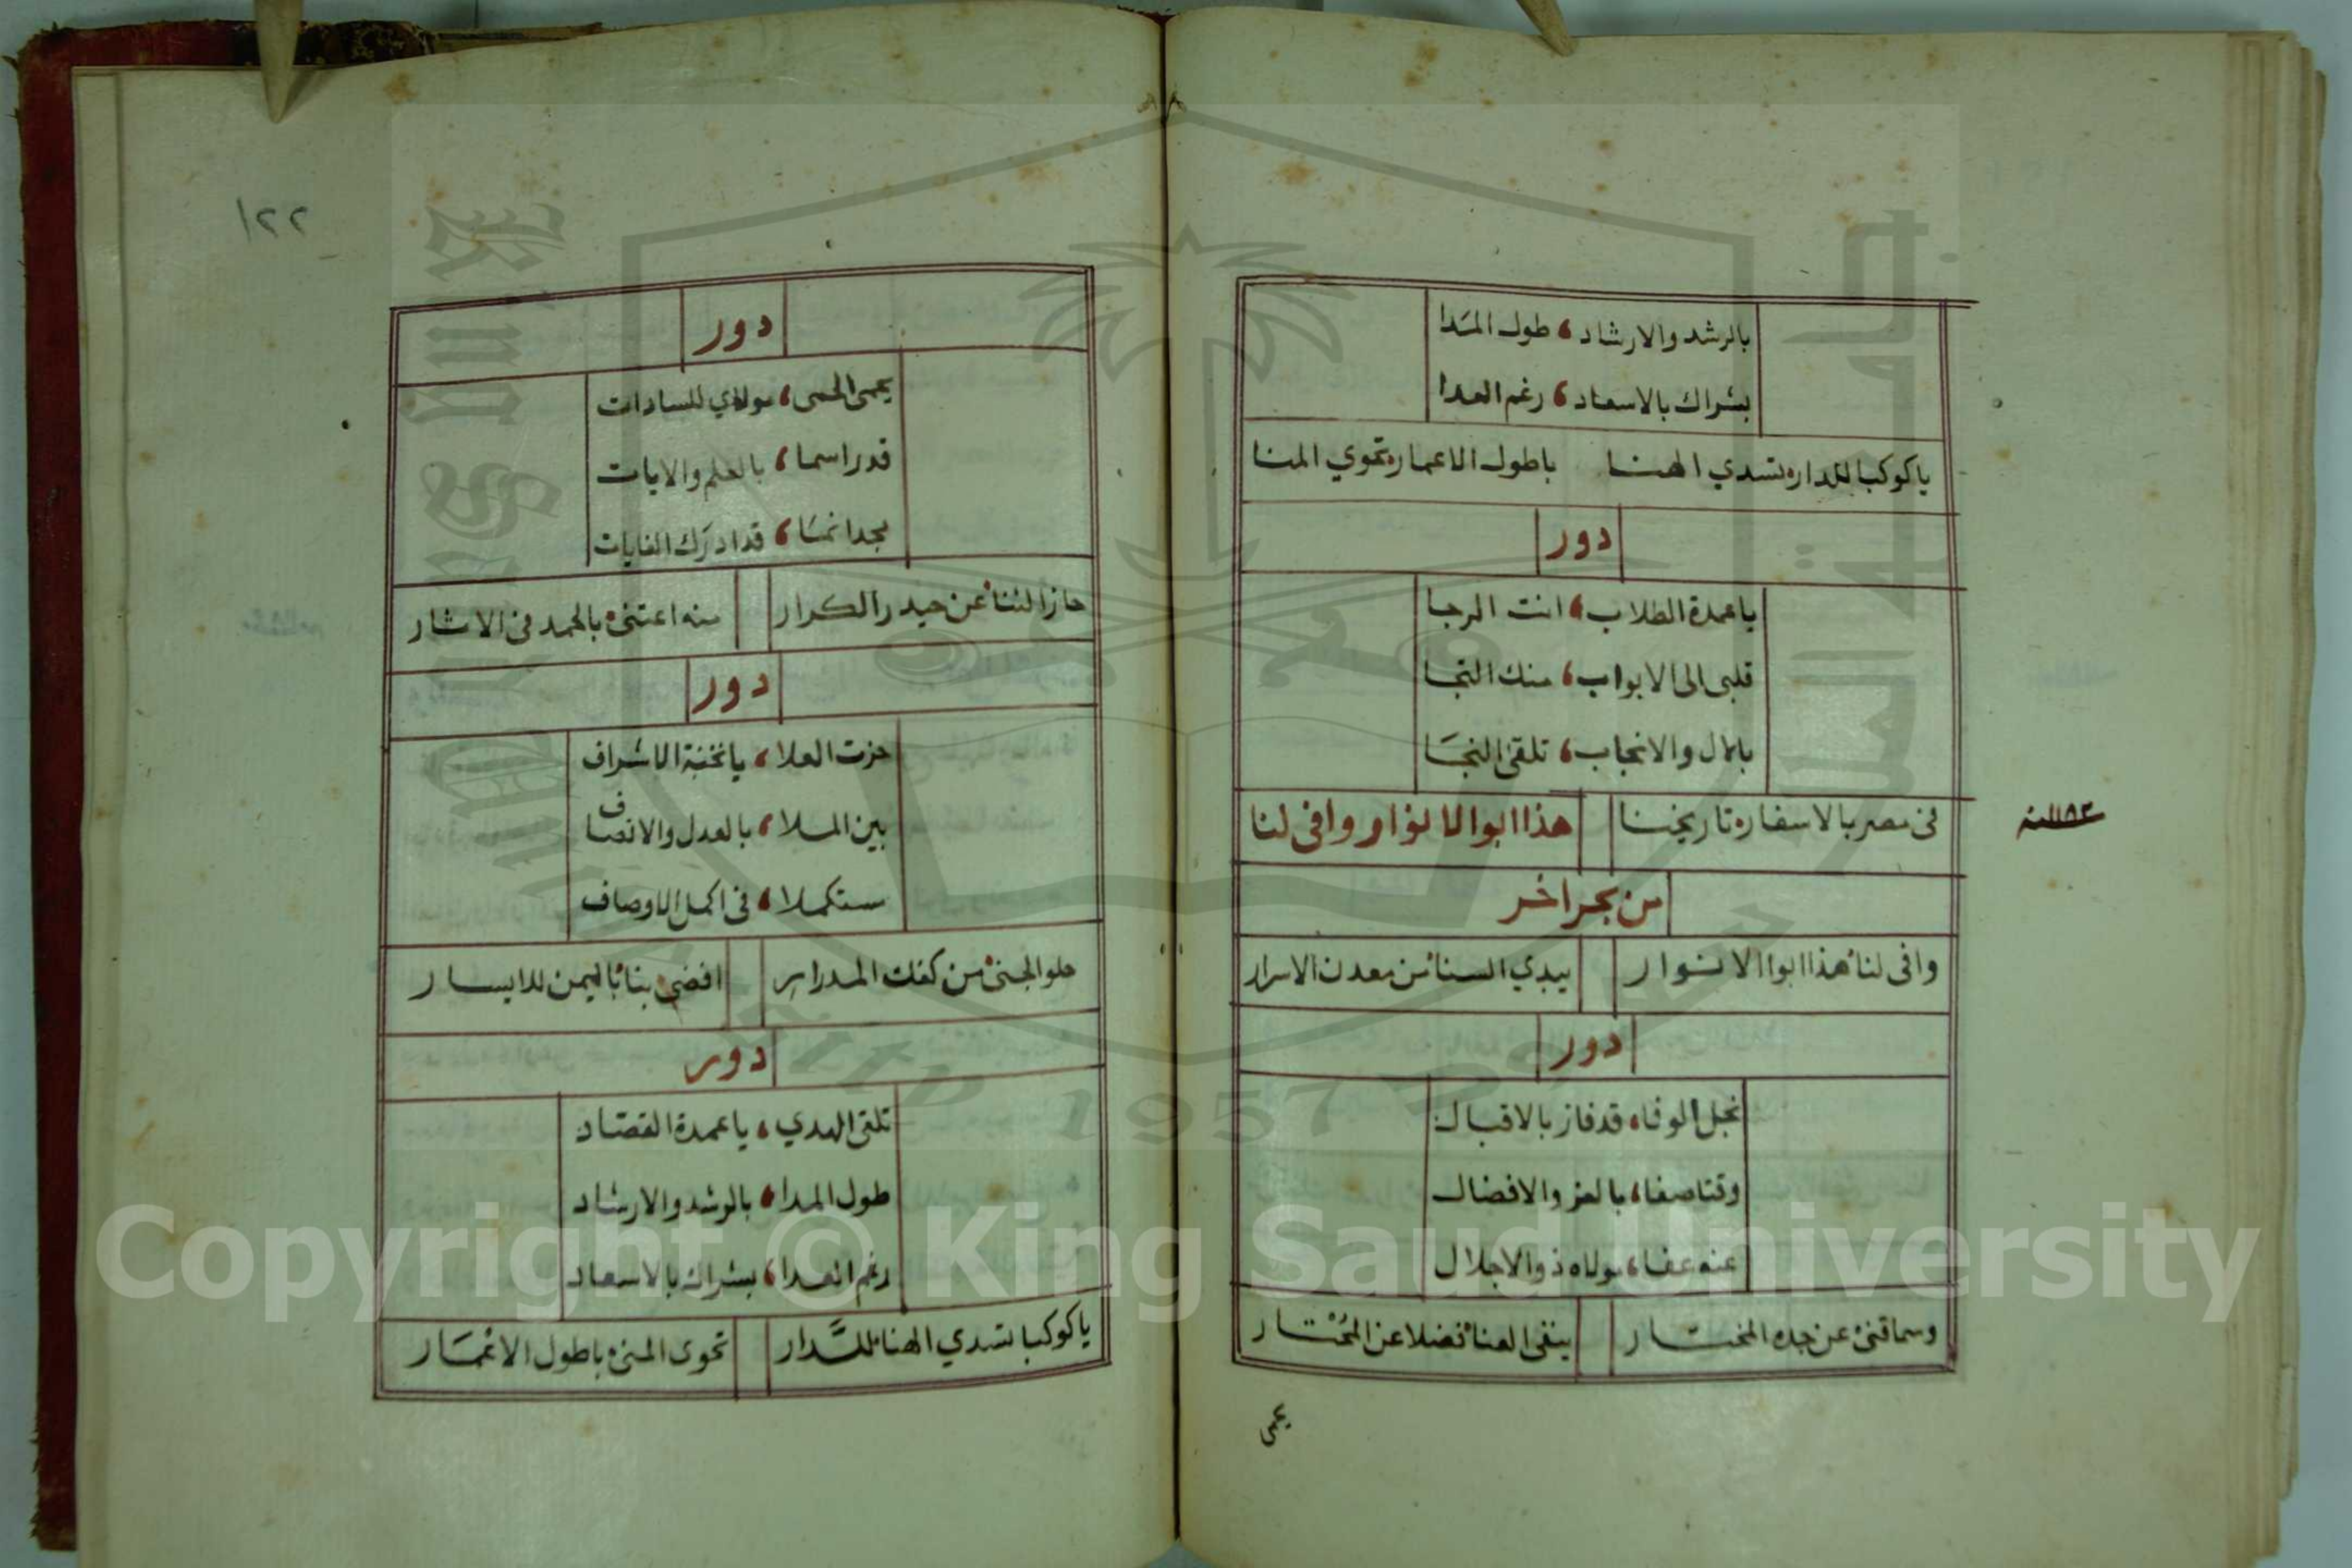 بالرشد والارشاد، طول المدا
بشراك بالاسعاد، رغم العدا
ياكوكبا للداره تسدي الهنا باطول الاعماره تحوي المنا
دور
ياعمدة الطلاب، انت الرجا
قلبى الى الابواب، منك التجا
بالال والانجاب، تلقى النجا
فى مصر بالاسفاره تاريخنا هذا ابو الانوار وافى لنا
سنة ١١٨٣
من بحر اخر
وافى لنا هذا ابوا الانوار يبدي السنا من معدن الاسرار
دور
نجل الوفا، قد فاز بالاقبال
وقتا صفا، بالعز والافضال
عنه عفا، مولاه ذو الاجلال
وسماقنى عن جده المختار ينفى العنا فضلا عن المختار
يحمى
١٢٢
دور
يحمى الحمى، مولاي للسادات
قدرا سما، بالعلم والايات
مجدا نما، قد ادرك الغايات
حاز الثنا عن حيدر الكرار منه اعتنى بالحمد فى الاثار
دور
حزت العلا، يا نخبة الاشراف
بين الملا، بالعدل والانصاف
ستكملا، فى اكمل الاوصاف
حلو الجنى من كفك المدرار افضى بنا باليمن للايسار
دور
تلقى الهدي، ياعمدة القصاد
طول المدا، بالرشد والارشاد
رغم العدا، بشراك بالاسعاد
ياكوكبا تسدي الهنا للدار تحوى المنى باطول الاعمار
Copyright © King Saud University
1957